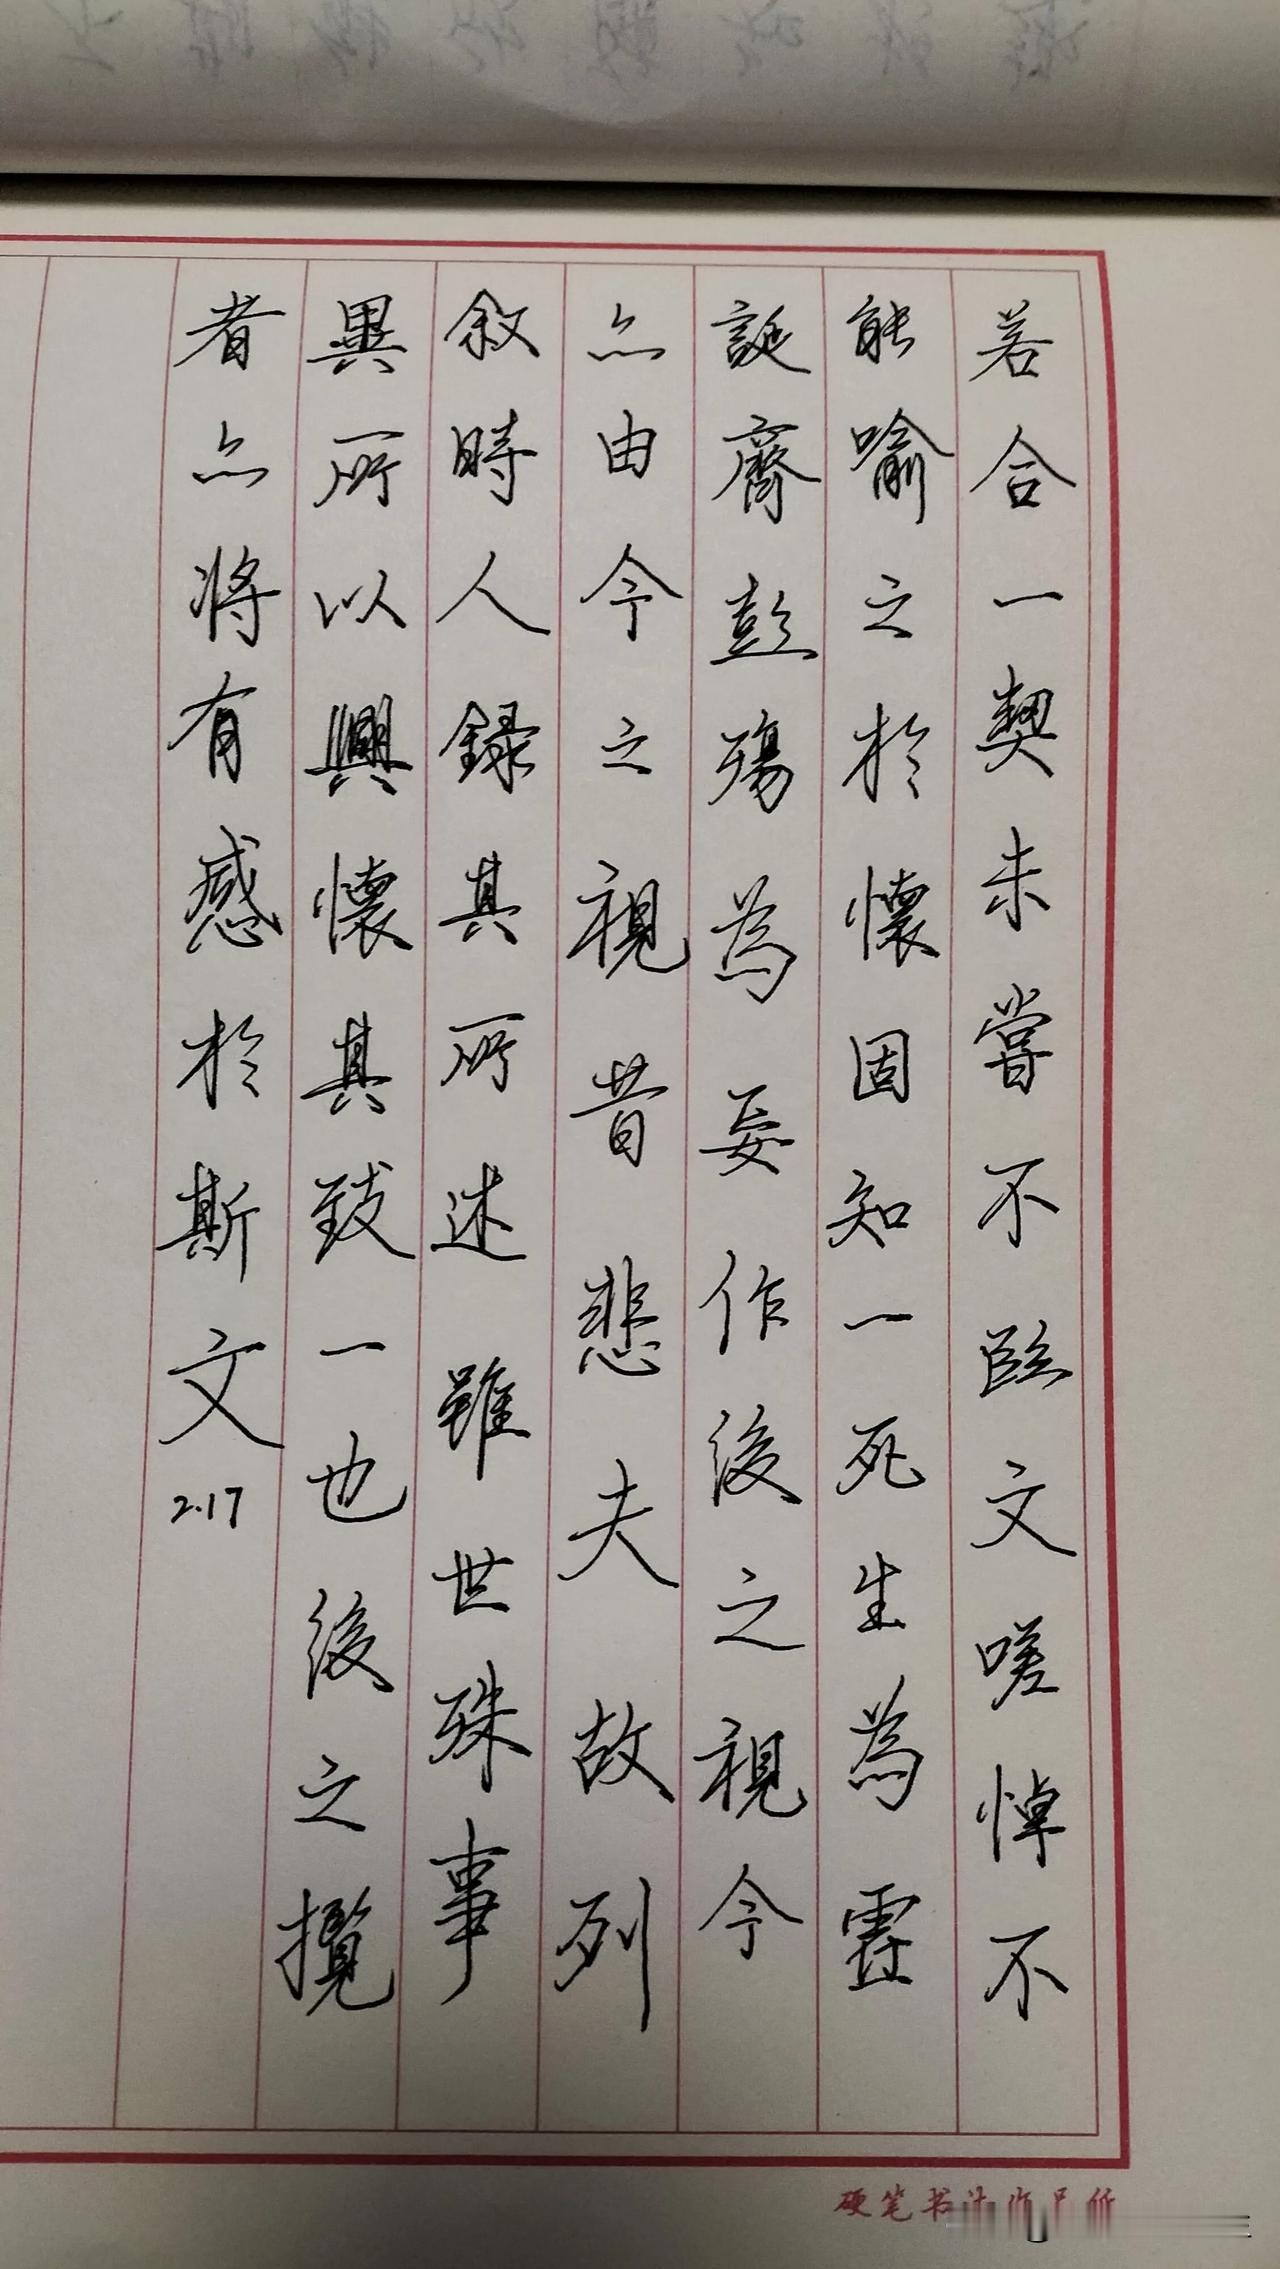 若合一契未嘗不臨文嗟悼不
能喻之於懷固知一死生為虛
誕齊彭殤為妄作後之視今
亦由今之視昔悲夫故列
敘時人錄其所述雖世殊事
異所以興懷其致一也後之攬
者亦將有感於斯文
2.17
硬笔书法作品纸